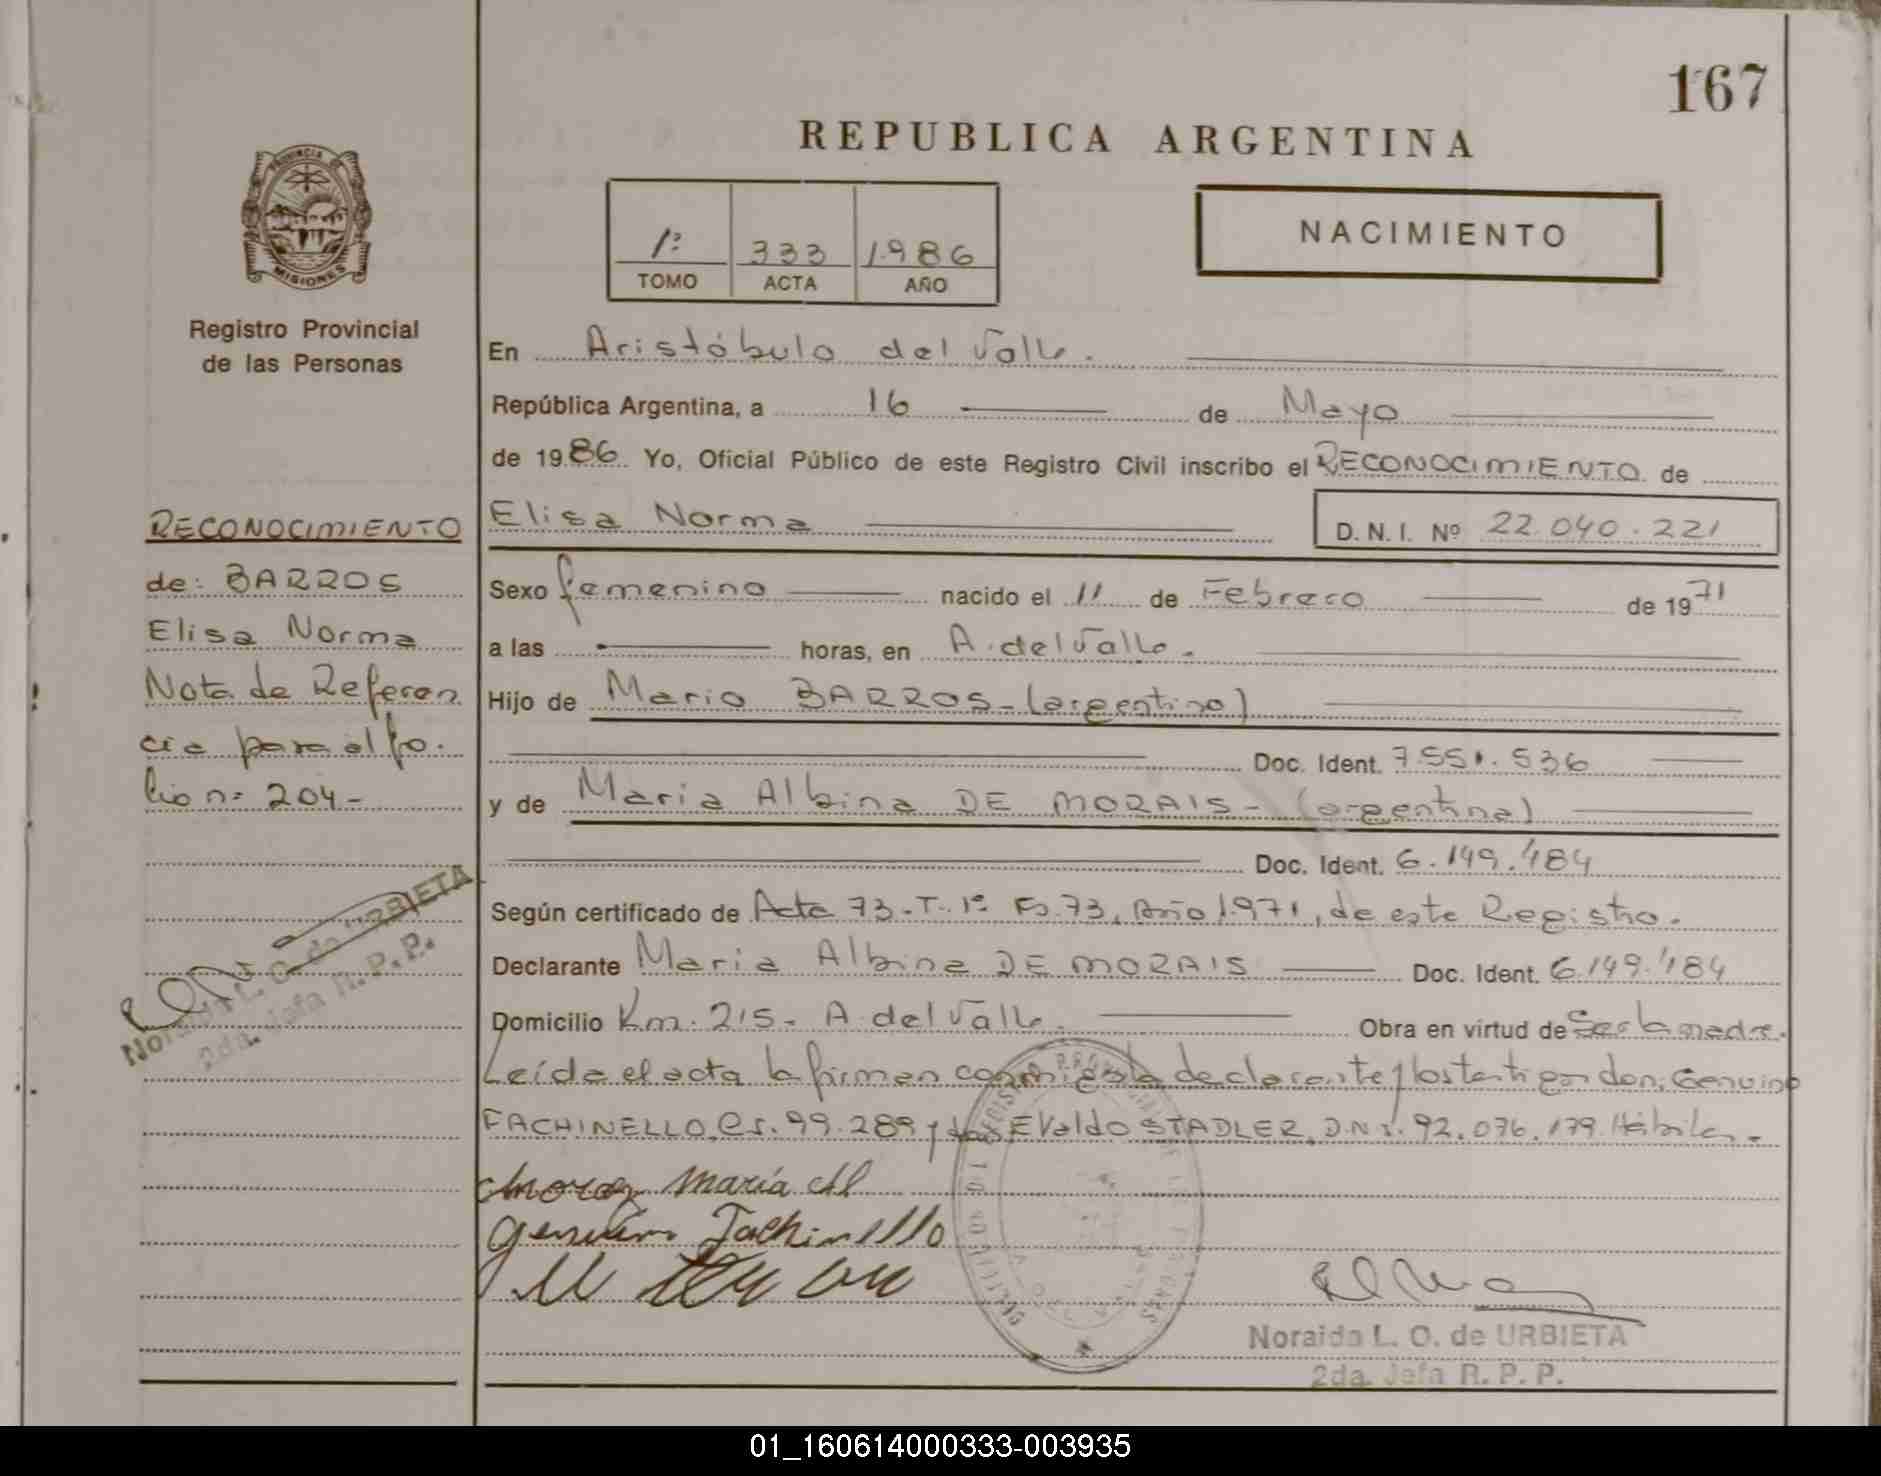 167
REPUBLICA ARGENTINA
1º 333 1.986
TOMO ACTA AÑO
NACIMIENTO
PROVINCIA DE
MISIONES
Registro Provincial
de las Personas
RECONOCIMIENTO
de: BARROS
Elisa Norma
Nota de Referen
cia para el fo.
lio nº 204-
Noraida L. O. de URBIETA
2da. Jefa R. P. P.
En Aristóbulo del Valle.
República Argentina, a 16 de Mayo
de 1986 Yo, Oficial Público de este Registro Civil inscribo el RECONOCIMIENTO de
Elisa Norma D. N. I. Nº 22.040.221
Sexo femenino nacido el 11 de Febrero de 1971
a las horas, en A. del Valle.
Hijo de Mario BARROS-(argentino)
Doc. Ident. 7.551.536
y de Maria Albina DE MORAIS-(argentina)
Doc. Ident. 6.149.484
Según certificado de Acta 73-T. 1º Fo. 73, Año 1.971, de este Registro.
Declarante Maria Albina DE MORAIS Doc. Ident. 6.149.484
Domicilio Km. 215- A. del Valle. Obra en virtud de Ser la madre.
Leída el acta la firman conmigo la declarante y los testigos don; Genuino
FACHINELLO, C.I. 99.289 y don EValdo STADLER, D.N.I. 92.076.179. Hábiles.
Moraez María Al
Genuino Fachinello
Noraida L. O. de URBIETA
2da. Jefa R. P. P.
01_160614000333-003935